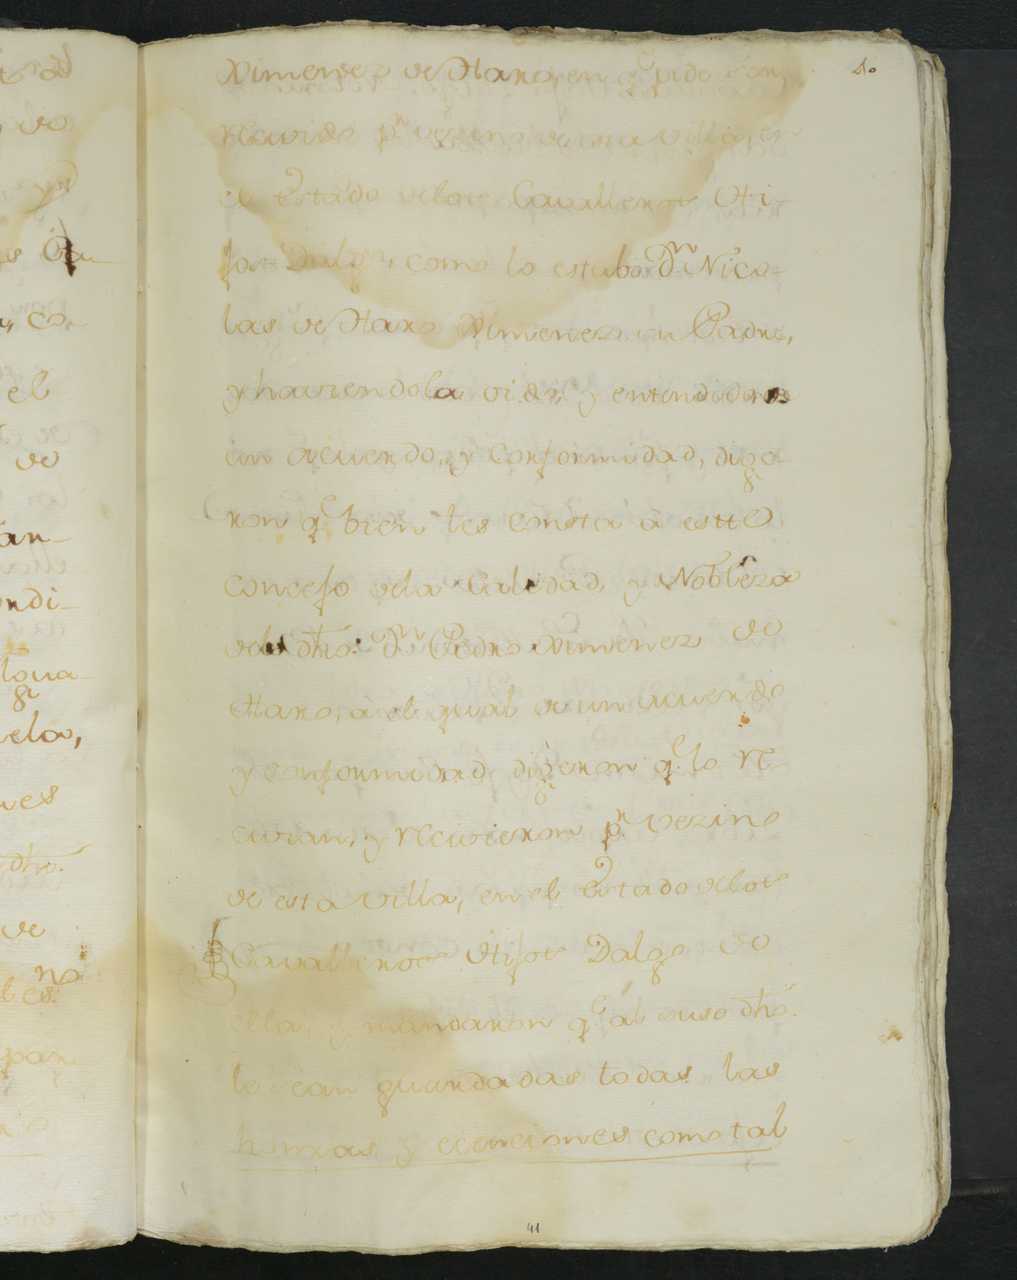 40
Ximenez de Haro, en q pide ser
recivido pr vezino de esta villa, en
el Estado delos Cavalleros Hi-
jos Dalgo, como lo estubo Dn Nico-
las de Haro Ximenez su Padre,
y haviendola oido, y entendido de
un acuerdo, y Conformidad, dige-
ron qe bien les consta à estte
Concejo dela Calidad, y Nobleza
del dho. Dn Pedro Ximenez de
Haro, à el qual de un acuerdo
y conformidad, digeron qe lo re-
civian, y recivieron pr vezino
de esta villa, en el Estado delos
Cavalleros Hijos Dalgo de
ella, y mandaron qe al suso dho.
le sean guardadas todas las
honras y ecenciones como tal
41